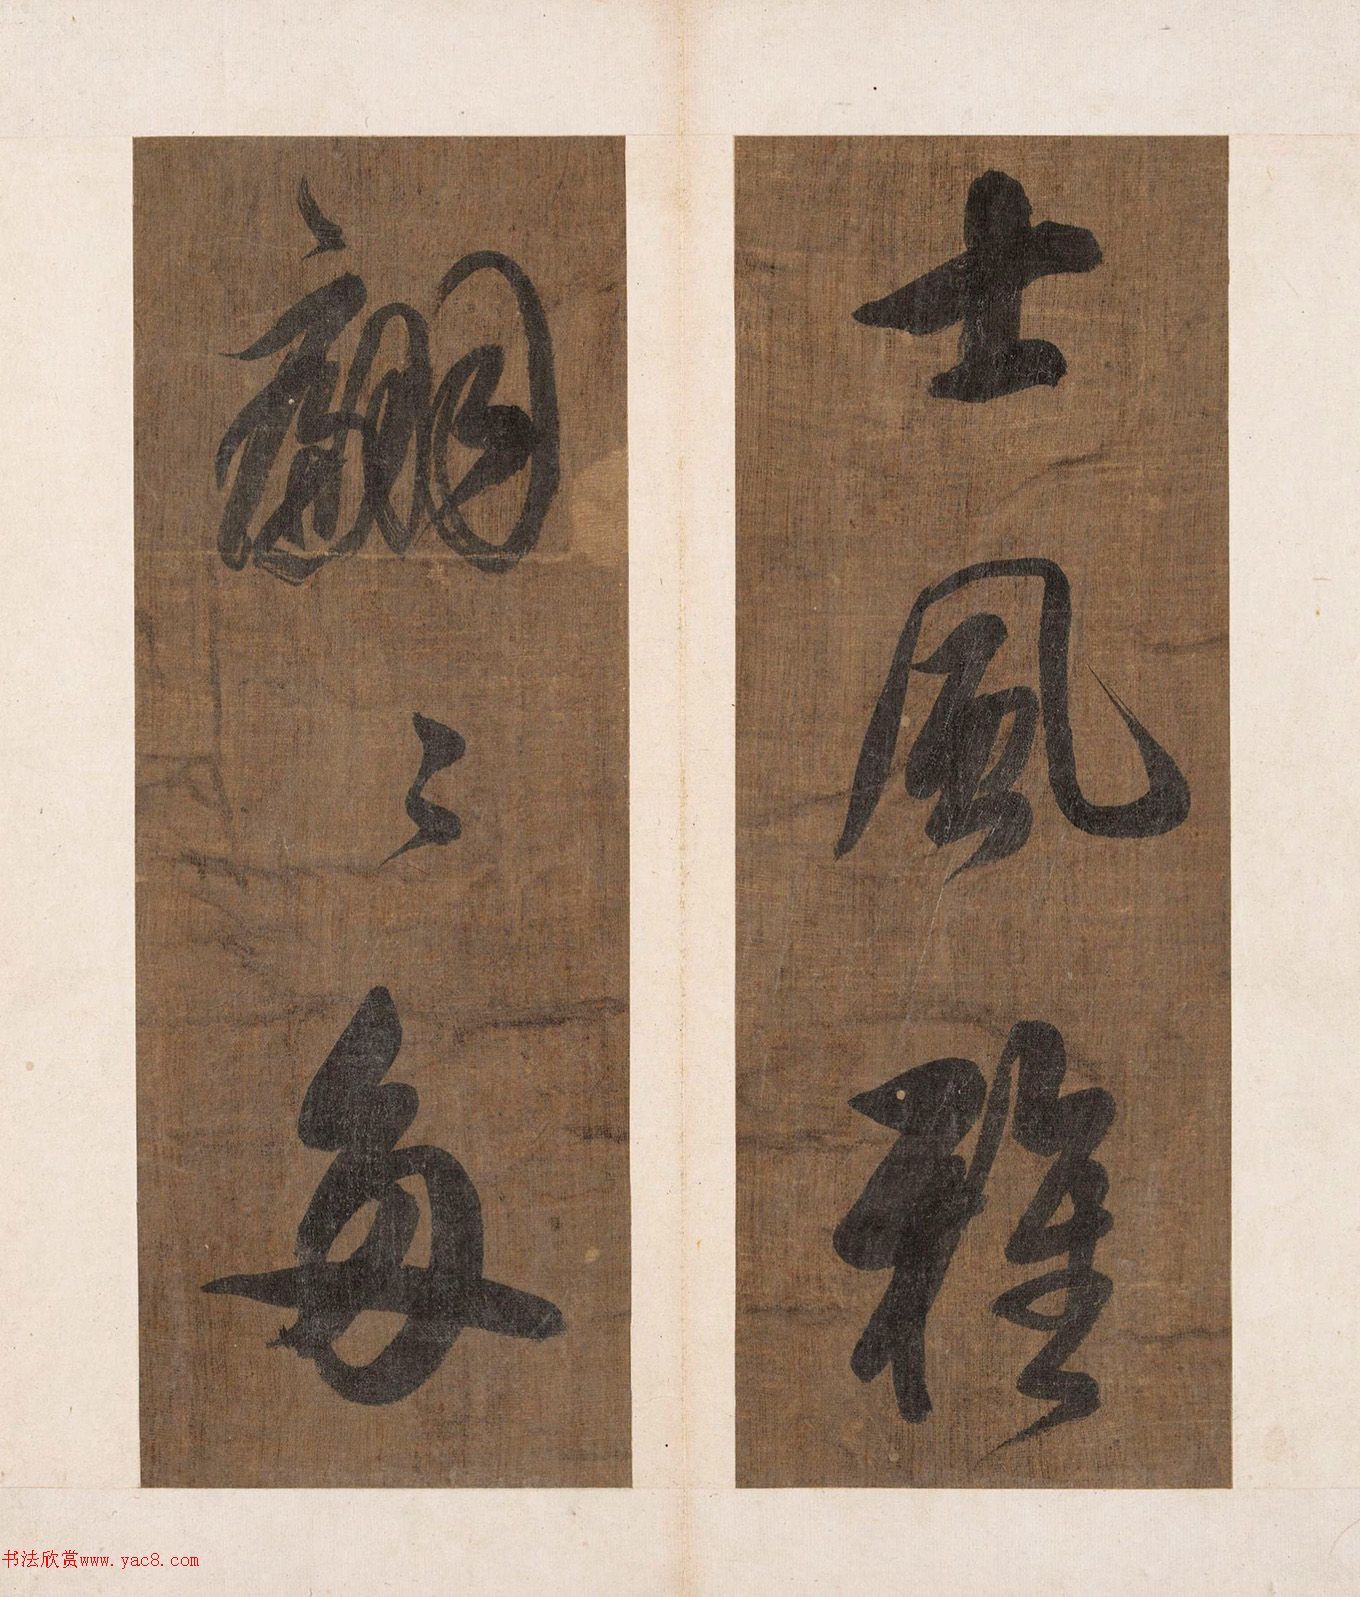 士風雅
翩々每
书法欣赏www.yac8.com